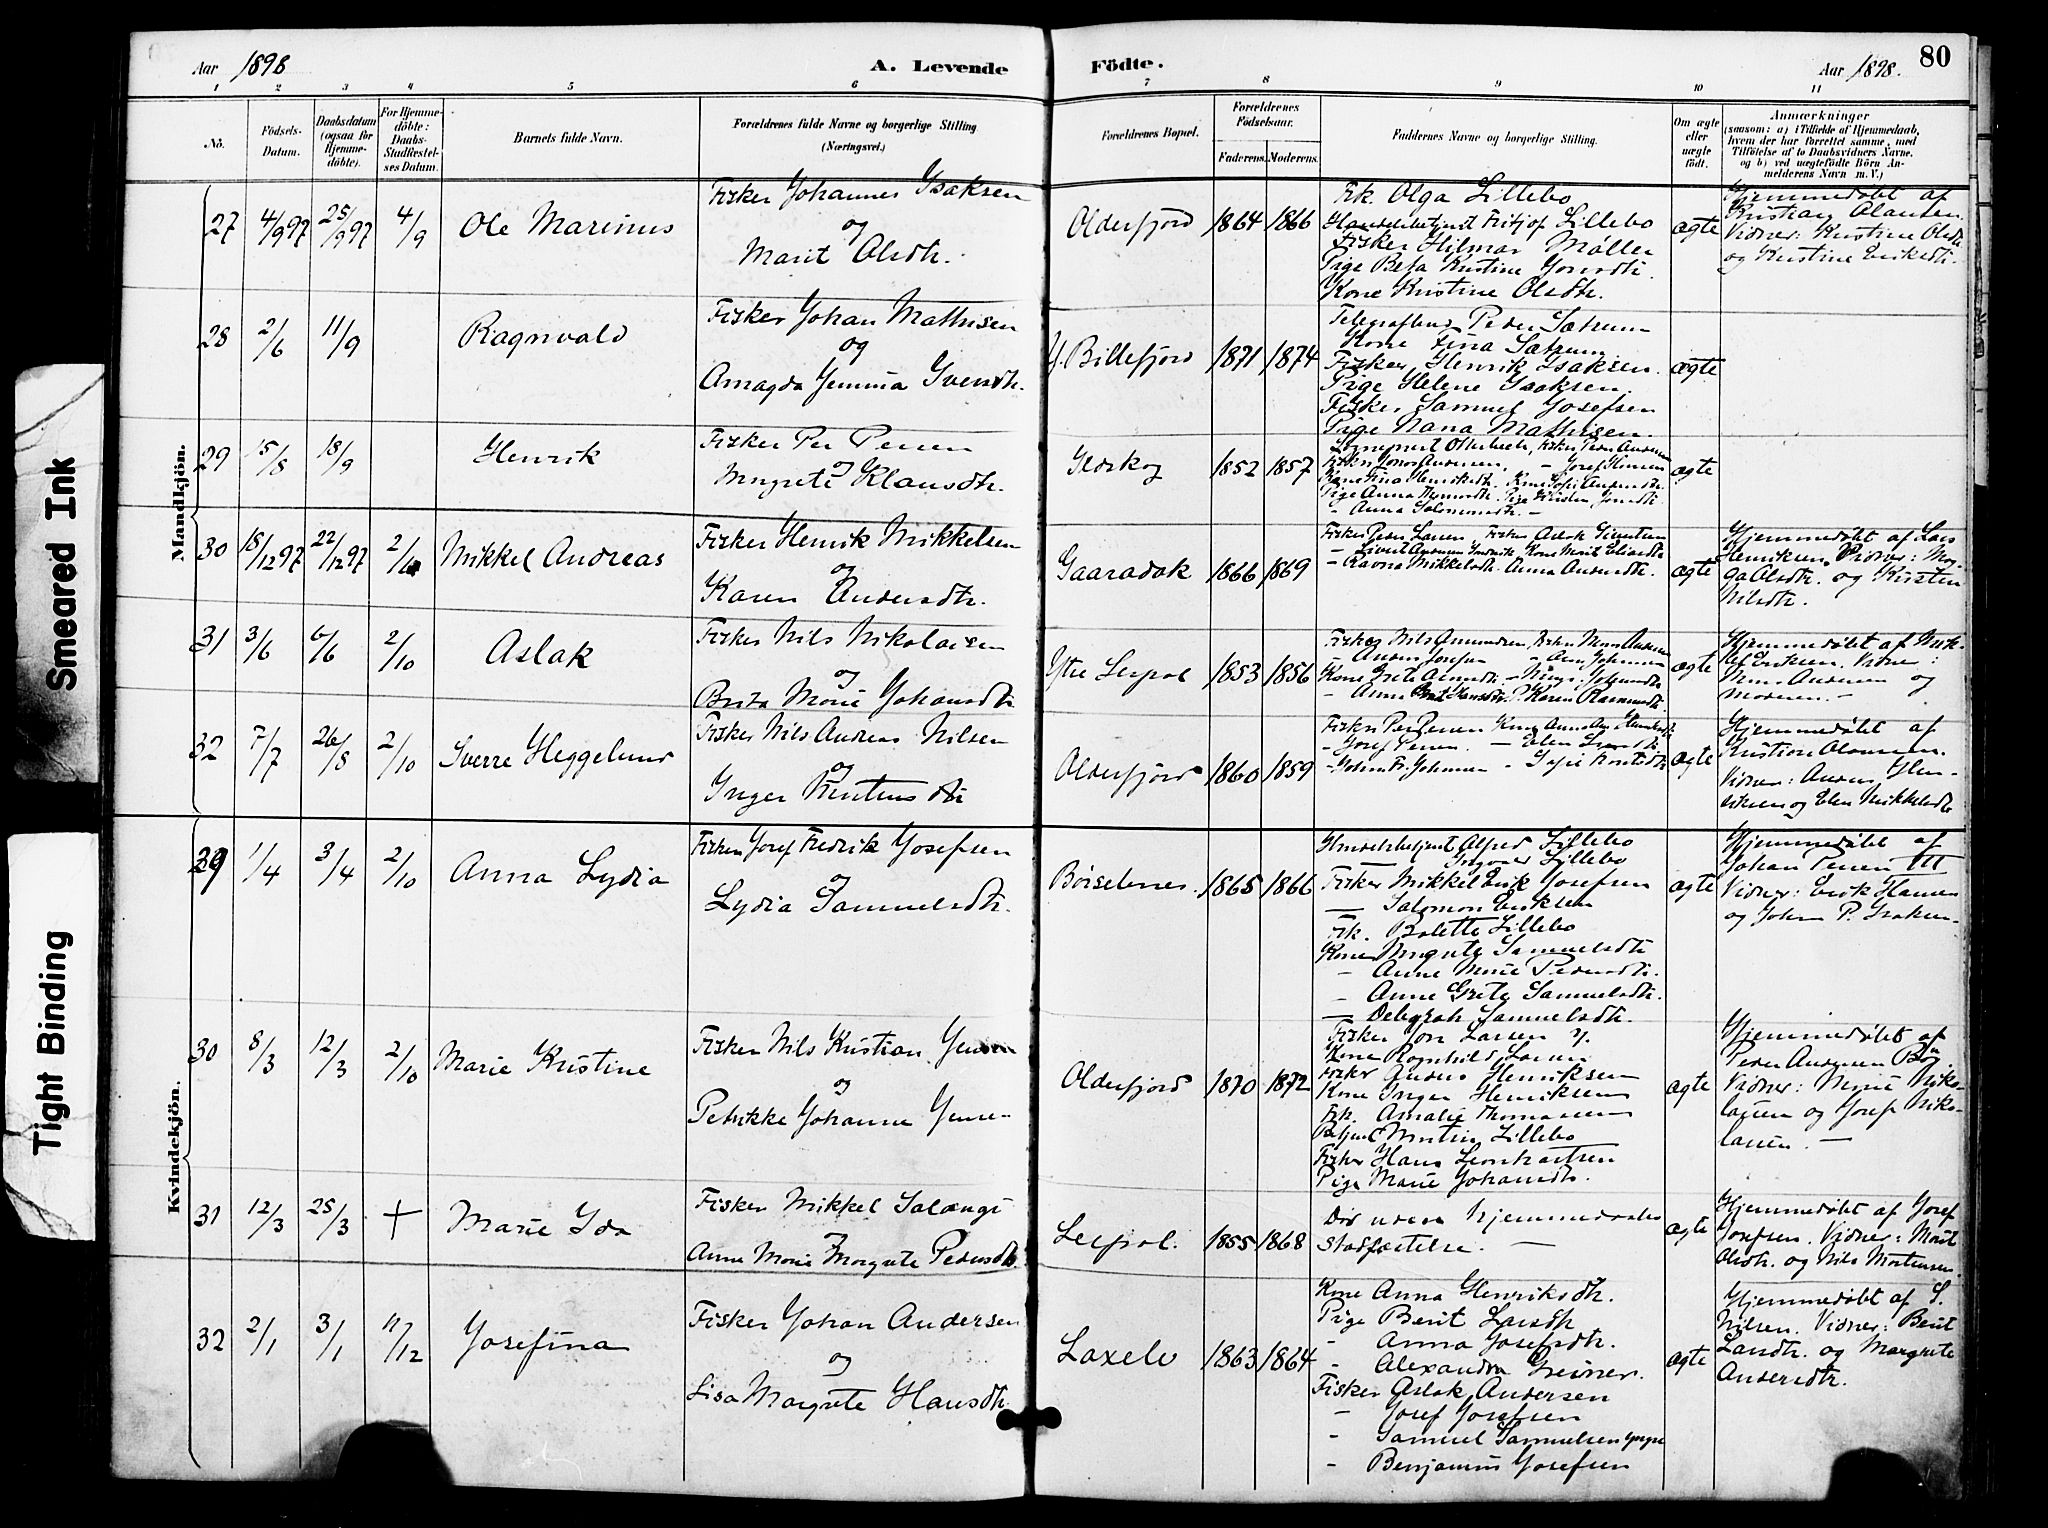 Smeared Ink
Tight Binding
Aar 1898
A. Levende
Födte.
Aar 1898.
80
1 2 3 4 5 6 7 8 9 10 11
No.
Födsels-
Datum.
Daabsdatum
(ogsaa for
Hjemme-
döbte).
For Hjemme-
döbte:
Daabs-
Stadfæstel-
ses Datum.
Barnets fulde Navn.
Forældrenes fulde Navne og borgerlige Stilling
(Næringsvei.)
Forældrenes Bopæl.
Forældrenes
Födselsaar.
Faderens. Moderens.
Faddernes Navne og borgerlige Stilling.
Om ægte
eller
uægte
födt.
Anmærkninger
(saasom: a) i Tilfælde af Hjemmedaab,
hvem der har forrettet samme, med
Tilföielse af to Daabsvidners Navne,
og b) ved uægtefödte Börn An-
melderens Navn m. V.)
Mandkjön.
27 4/9 97 25/9 97 4/9 Ole Marinus
Fisker Johannes Isaksen
og
Marit Olsdtr.
Olderfjord 1864 1866
Frk. Olga Lillebo
Handelsbetjent Fritjof Lillebo
Fisker Hilmar Møller
Pige Beta Kristine Jonsdtr.
Kone Kristine Olsdtr.
ægte
Hjemmedøbt af
Kristian Olausen
Vidner: Kristine Olsdtr
og Kristine Eriksdtr.
28 2/6 11/9 Ragnvald
Fisker Johan Mathisen
og
Amagda Jemina Svendtr.
Y. Billefjord 1871 1874
Telegrafbud Peder Sætrum
Kone Fina Sætrum
Fisker Henrik Isaksen.
Pige Helene Isaksen.
Fisker Samuel Josefsen
Pige Nana Mathisen.
ægte
29 15/8 18/9 Henrik
Fisker Per Persen
og
Margrete Klausdtr.
Ildskog 1852 1857
Josef Hansen
Pige Anna
Anna Salomonsdtr.
ægte
30 18/12 97 22/12 97 2/10 Mikkel Andreas
Fisker Henrik Mikkelsen
og
Karen Andersdtr.
Gaaradak 1866 1869
Fisker Peder Larsen Fisker Aslak
Ravna Mikkelsdtr. Anna Andersdtr.
ægte
Hjemmedøbt af Lars
Henriksen. Vidner: Mar-
ga Olsdtr. og Kirsten
Nilsdtr.
31 3/6 6/6 2/10 Aslak
Fisker Nils Nikolaisen
og
Brita Marie Johansdtr
Ytre Leirpol 1853 1856
Fisker Nils Amundsen, Fisker Mons Andersen
Anders Josefsen
Kone Grete
Karen Rasmusdtr.
ægte
Hjemmedøbt af Mik-
kel Eriksen. Vidner:
Mons Andersen og
Moderen —
32 7/7 26/8 2/10 Sverre Heggelund
Fisker Nils Andreas Nilsen
og
Inger Kristensdtr
Olderfjord 1860 1859
Fisker Per Persen
Josef Persen
Johan Fr. Johansen
ægte
Hjemmedøbt af
Kristian Olausen.
Vidner: Anders Hen-
riksen og Elen Mikkelsdtr
Kvindekjön.
29 1/4 3/4 2/10 Anna Lydia
Fisker Josef Fredrik Josefsen
og
Lydia Sammelsdtr.
Børselvnes. 1865 1866
Handelsbetjent Alfred Lillebo
Ingvar Lillebo
Fisker Mikkel Erik Josefsen
— Salomon Eriksen
Frk. Bolette Lillebo
Kone Margrete Sammelsdtr
— Anne Marie Pedersdtr.
— Anne Grete Sammelsdtr.
— Deborah Sammelsdtr.
ægte
Hjemmedøbt af
Johan Persen
Vidner: Erik Hansen
og Johan P. Isaksen.
30 8/3 12/3 2/10 Marie Kristine
Fisker Nils Kristian Jensen
og
Petrikke Johanne Jense-
Olderfjord 1870 1872
Fisker Jon Larsen y.
Kone Ragnhild Larsen
Fisker Anders Henriksen
Kone Inger Henriksen
Frk. Amalie Thomassen
Betjent Martin Lillebo
Fisker Hans Leonhartsen
Pige Marie Johansdtr.
ægte
Hjemmedøbt af
Peder Andersen
Vidner: Marie Niko-
laisen og Josef Niko-
laisen. —
31 12/3 25/3 + Marie Ida
Fisker Mikkel Salangi
og
Anne Marie Margrete Pedersdtr
Leirpol. 1855 1868
Død uden Hjemmedaabs
Stadfæstelse. —
ægte
Hjemmedøbt af Josef
Josefsen. Vidner: Marit
Olsdtr. og Nils Mortensen
32 2/1 3/1 11/12 Josefina
Fisker Johan Andersen
og
Lisa Margrete Hansdtr.
Laxelv 1863 1864
Kone Anna Henriksdtr.
Pige Berit Larsdtr
- Anna Josefsdtr.
- Alexandra Greiner.
Fisker Aslak Andersen
- Josef Josefsen
- Samuel Sammelsen yngre
- Benjamin Josefsen
ægte
Hjemmedøbt af S.
Nilsen. Vidner: Berit
Larsdtr. og Margrete
Andersdtr.